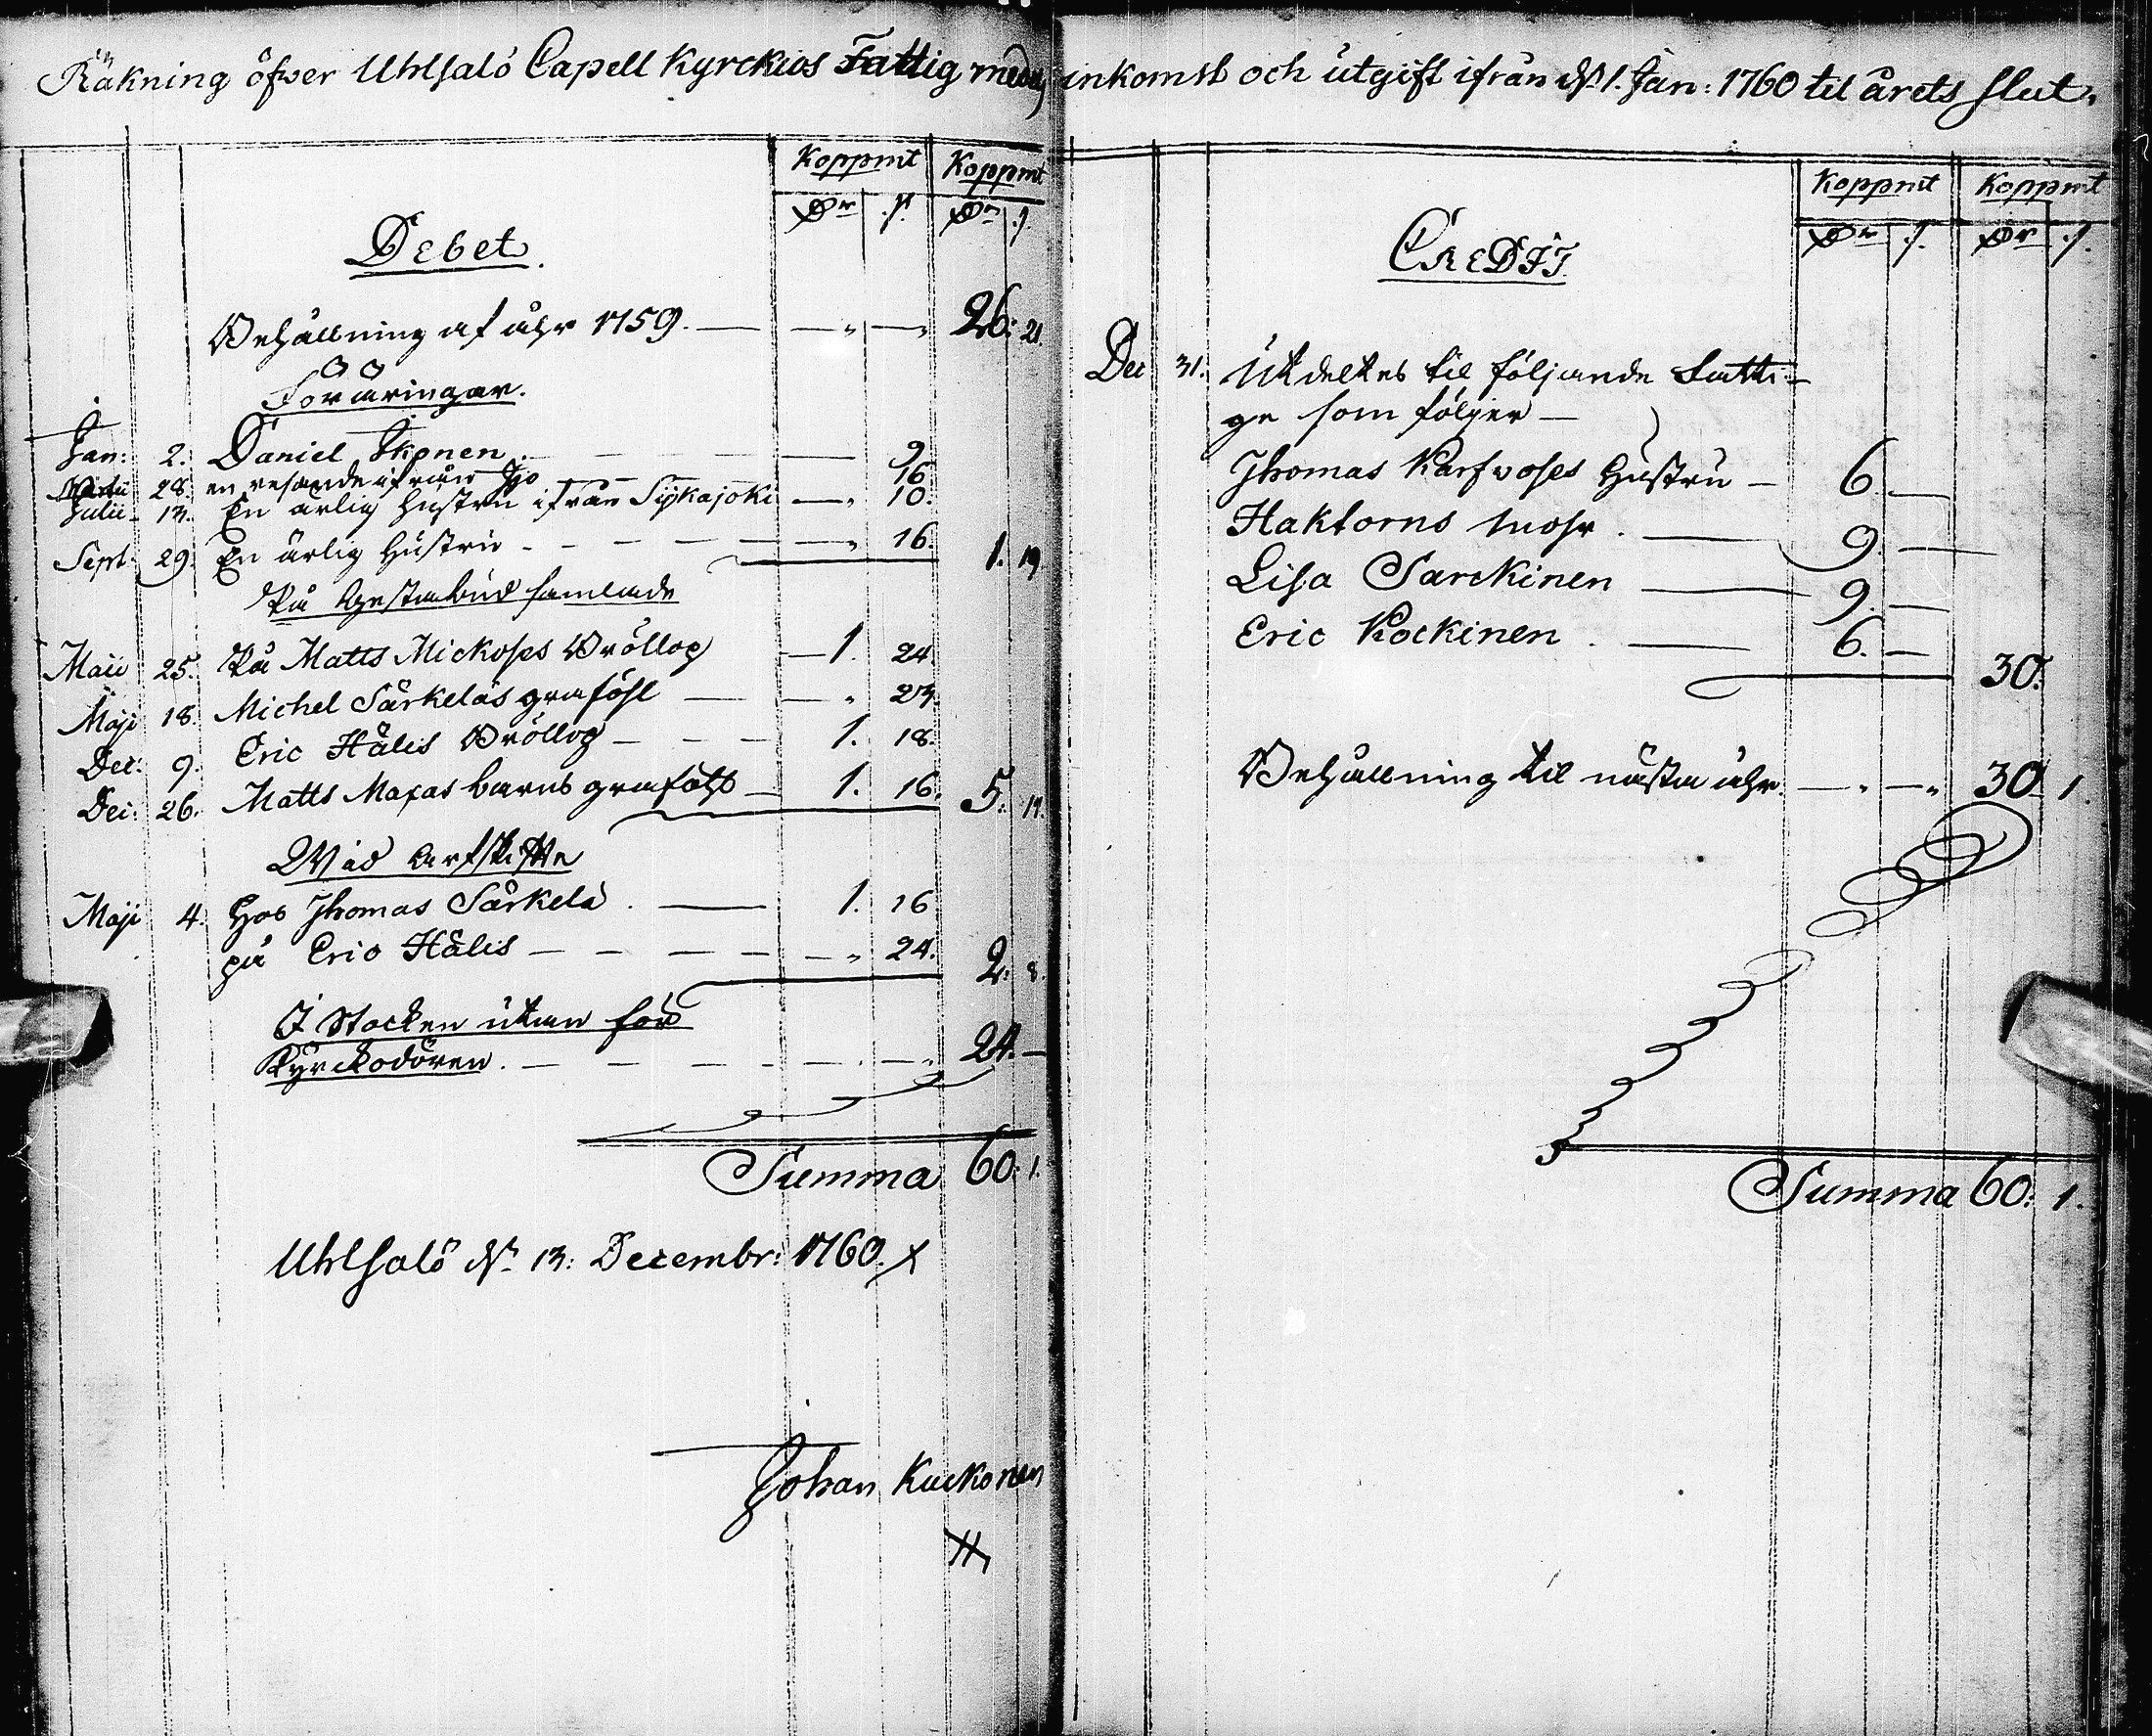 Räkning öfwer Uhlsalo Capell Kyrckios Fattig medels inkomst och utgift ifrån d. 1. Jan: 1760 til årets slut.
Koppmt Koppmt
Dr s. Dr s.
Debet.
Behållning af åhr 1759. — — " — " 26: 21.
Föräringar.
Jan: 2. Daniel Ikonen. — 9
Martii 28. en resande ifrån Ijo 16
Julii 13. En ärlig hustru ifrån Sijkajoki — " 10.
Sept: 29. En ärlig hustru — " 16. 1. 19
På Gestabud samlade
Maii 25. På Matts Mickoses Bröllop — 1. 24.
Maji 18. Michel Särkeläs grafööl — " 23.
Dec: 9. Eric Hälis Bröllop — 1. 18.
Dec: 26. Matts Maxas barns graföhl — 1. 16. 5. 17.
Wid arfskifte
Maji 4. Hos Thomas Särkelä. — 1. 16
på Eric Hälis — " 24. 2: 8.
I Stocken utan för
Kyrckodören. — 24. —
Summa 60: 1.
Uhlsalo d. 13: Decembr: 1760.
Johan Kuckonen
Koppmt Koppmt
Dr s. Dr s.
CREDIT
Dec 31. Utdeltes til följande Fatti-
ge som följer —
Thomas Karfvoses Hustru — 6. —
Haktorns mohr. — 9. —
Lisa Sarckinen — 9. —
Eric Kockinen. — 6. — 30.
Behållning til nästa åhr. — " — " 30. 1.
Summa 60: 1.